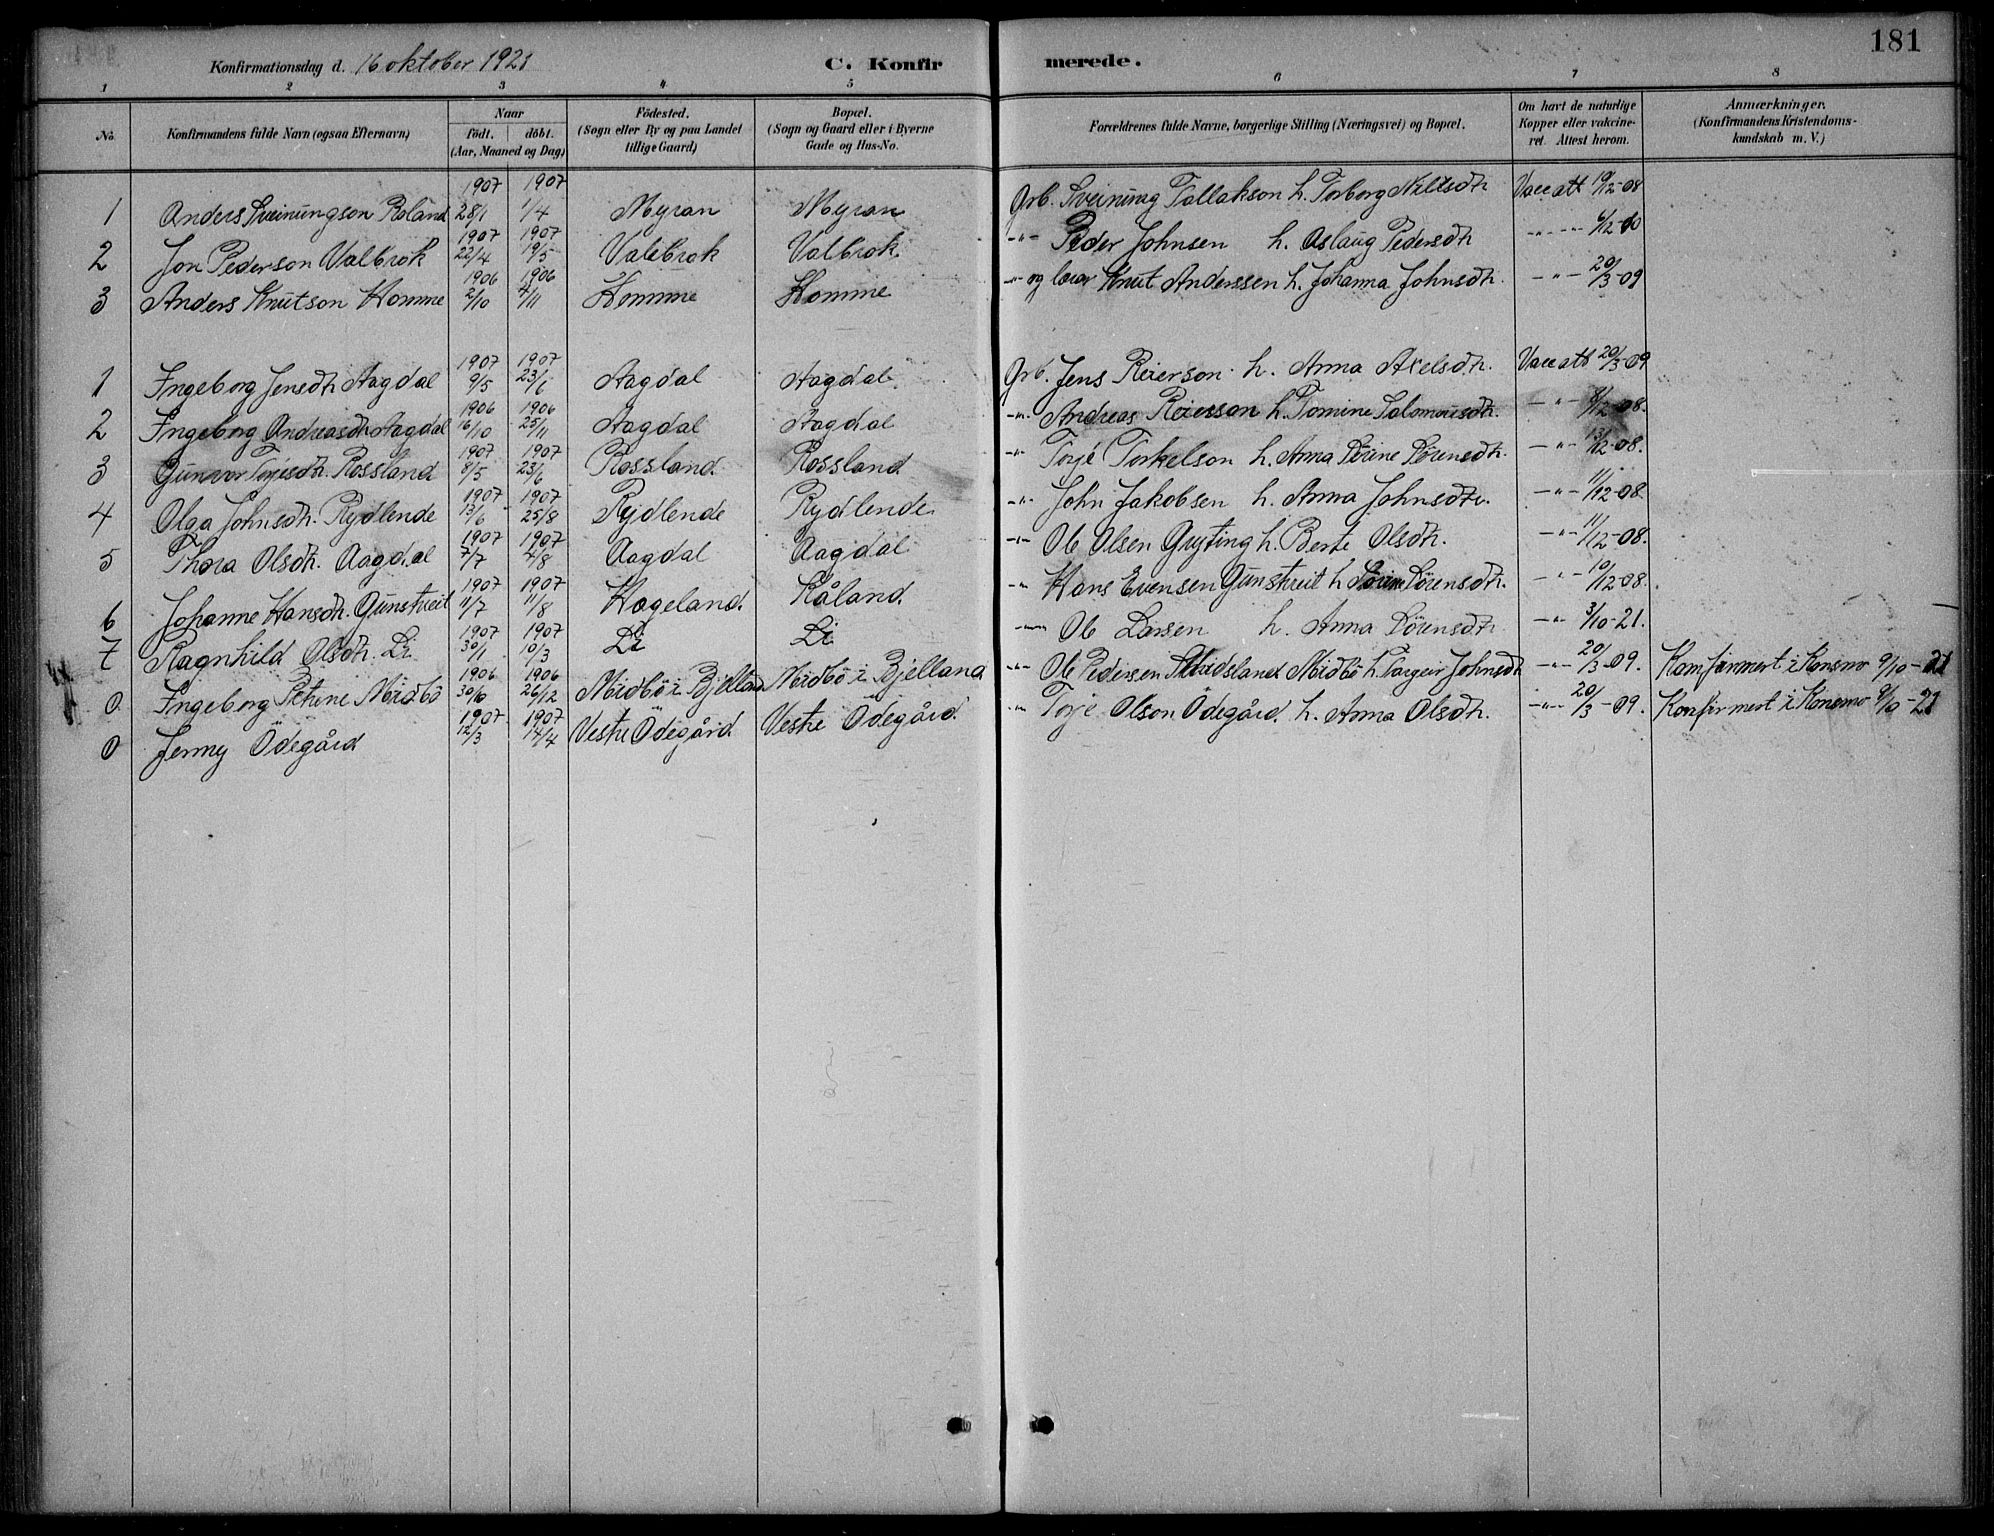 181
Konfirmationsdag d. 16 oktober 1921 C. Konfirmerede.
1 2 3 4 5 6 7 8
No. Konfirmandens fulde Navn (ogsaa Efternavn) Naar födt. döbt. (Aar, Maaned og Dag) Födested. (Sogn eller By og paa Landet tillige Gaard) Bopæl. (Sogn og Gaard eller i Byerne Gade og Hus-No. Forældrenes fulde Navne, borgerlige Stilling (Næringsvei) og Bopæl. Om havt de naturlige Kopper eller vakcineret. Attest herom. Anmærkninger. (Konfirmandens Kristendomskundskab m. V.)
1 Anders Sveinungson Roland 1907 28/1 1907 1/4 Myran Myran Grb. Sveinung Tallakson h. Torborg Nilsdtr Vacc att 19/12-08
2 Jon Pederson Valbrok 1907 22/4 1907 19/5 Valebrok Valbrok -"- Peder Johnsen h. Aslaug Pedersdtr -"-"- 6/12-10
3 Anders Knutson Homme 1906 2/10 1906 4/11 Homme Homme -"- og lærer Knut Anderssen h. Johanna Johnsdtr. -"- 20/3-09
1 Ingeborg Jensdtr Aagdal 1907 9/5 1907 23/6 Aagdal Aagdal Grb. Jens Reierson h. Anna Axelsdtr. Vacc att 20/3-09
2 Ingeborg Andreasdtr Aagdal 1906 16/10 1906 25/11 Aagdal Aagdal -"- Andreas Reiersson h. Tomine Salomonsdtr. -"- 8/12-08.
3 Gunvor Torjesdtr. Rossland 1907 8/5 1907 23/6 Rossland Rossland -"- Torje Torkelson h. Anna Sörine Sörensdtr. -"- 13/12-08.
4 Olga Johnsdtr. Rydlende 1907 13/6 1907 25/8 Rydlende Rydlende -"- John Jakobsen h. Anna Johnsdtr. -"- 11/12-08.
5 Thora Olsdtr. Aagdal 1907 7/7 1907 4/8 Aagdal Aagdal -"- Ole Olsen Gryting h. Berte Olsdtr. -"- 11/12-08.
6 Johanne Hansdtr. Gunstveit 1907 11/7 1907 11/8 Hægeland. Råland. -"- Hans Evensen Gunstveit h Sörine Sörensdtr. -"- 10/12-08.
7 Ragnhild Olsdtr. Li 1907 30/1 1907 10/3 Li Li -"- Ole Larsen h. Anna Sörensdtr -"- 3/10-21.
0 Ingeborg Petrine Midbö 1906 30/6 1906 26/12 Midbö i Bjelland Midbö i Bjelland -"- Ole Pedersen Midbö h. Torgeir Johnsdtr -"- 20/3-09. Komfirmert i Konsmo 9/10-21
0 Jenny Ödegård 1907 12/3 1907 14/4 Vestre Ödegård Vestre Ödegård -"- Torje Olson Ödegård. h. Anna Olsdtr. -"- 20/3-09. Konfirmert i Konsmo 9/10-21